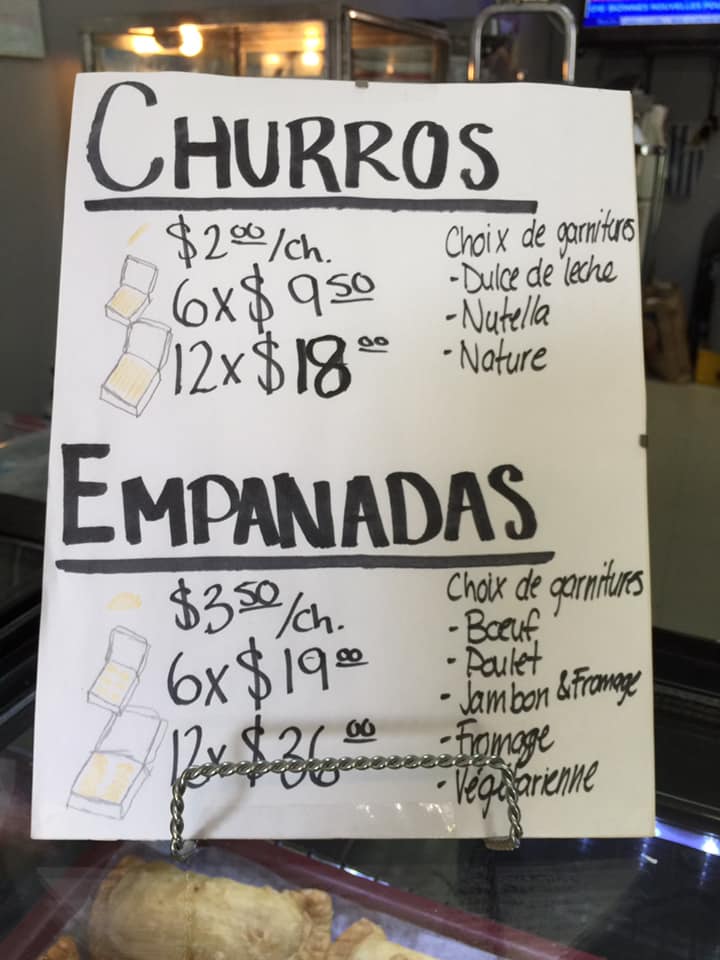 CHURROS
$2.00/ch.
6x$9.50
12x$18.00
Choix de garnitures
-Dulce de leche
-Nutella
-Nature
EMPANADAS
$3.50/ch.
6x$19.00
12x$36.00
Choix de garnitures
-Bœuf
-Poulet
-Jambon & Fromage
-Fromage
-Végétarienne